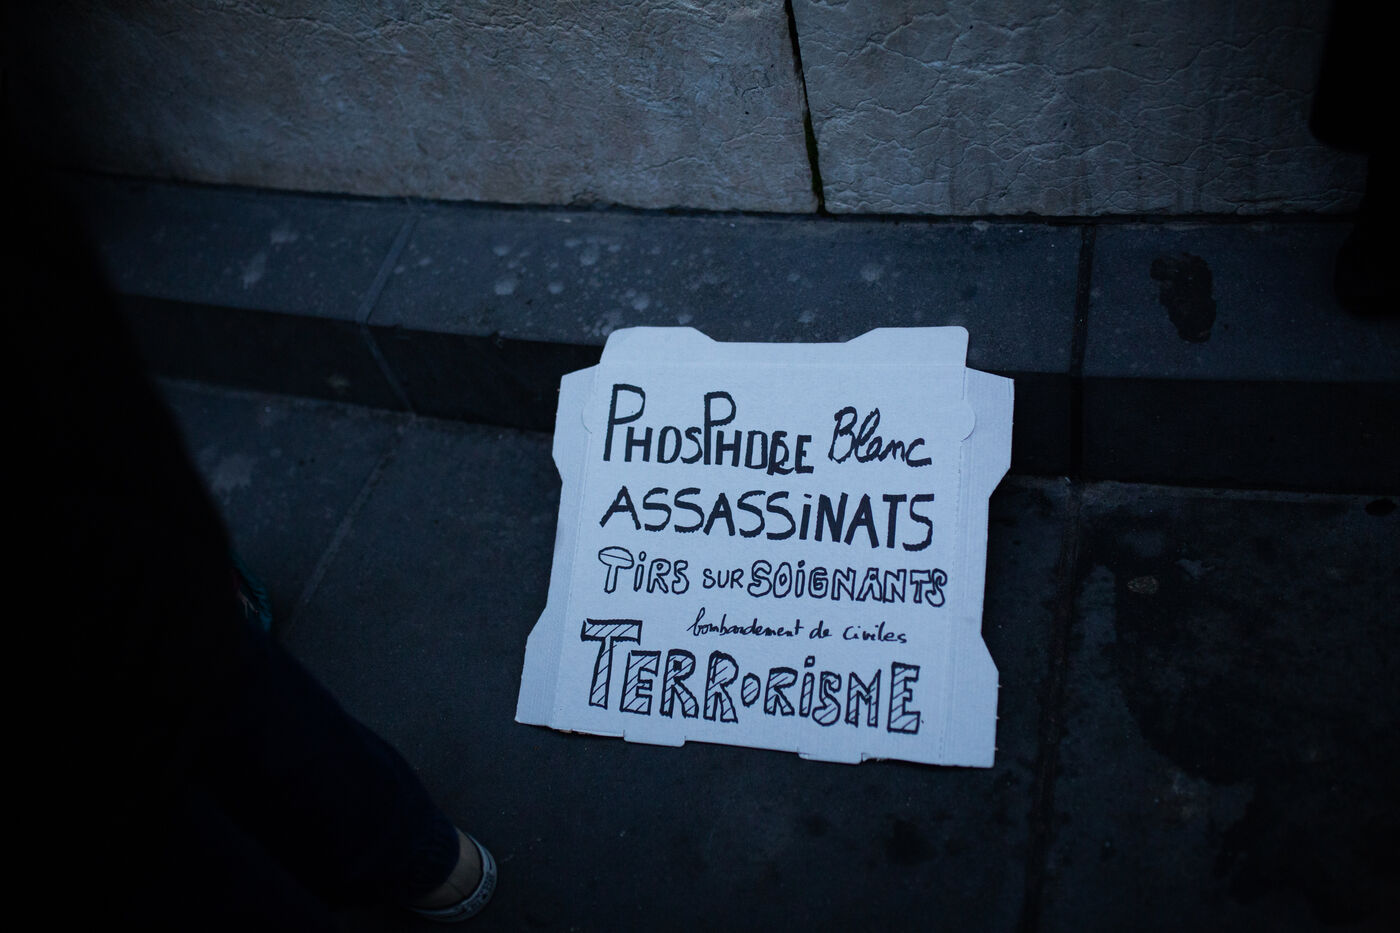 PHOSPHORE Blanc
ASSASSiNATS
TiRS SUR SOiGNANTS
bombardement de civiles
TERRORiSME